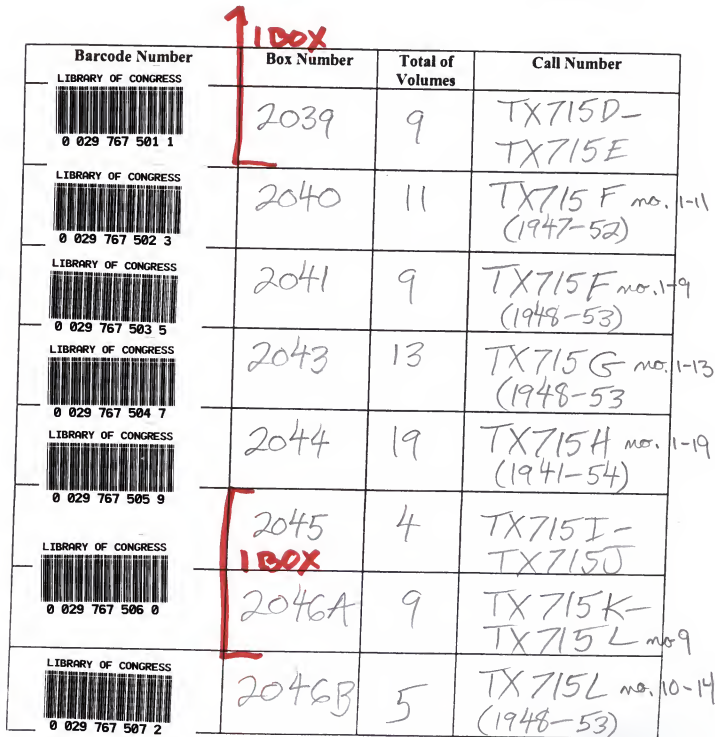 1 BOX
Barcode Number Box Number Total of Volumes Call Number
LIBRARY OF CONGRESS
0 029 767 501 1
2039 9 TX715D-
TX715E
LIBRARY OF CONGRESS
0 029 767 502 3
2040 11 TX715 F no. 1-11
(1947-52)
LIBRARY OF CONGRESS
0 029 767 503 5
2041 9 TX715F no. 1-9
(1948-53)
LIBRARY OF CONGRESS
0 029 767 504 7
2043 13 TX715G no. 1-13
(1948-53
LIBRARY OF CONGRESS
0 029 767 505 9
2044 19 TX715H no. 1-19
(1941-54)
LIBRARY OF CONGRESS
0 029 767 506 0
2045 4 TX715I-
TX715J
1 BOX
2046A 9 TX715K-
TX715L no 9
LIBRARY OF CONGRESS
0 029 767 507 2
2046B 5 TX715L no. 10-14
(1948-53)